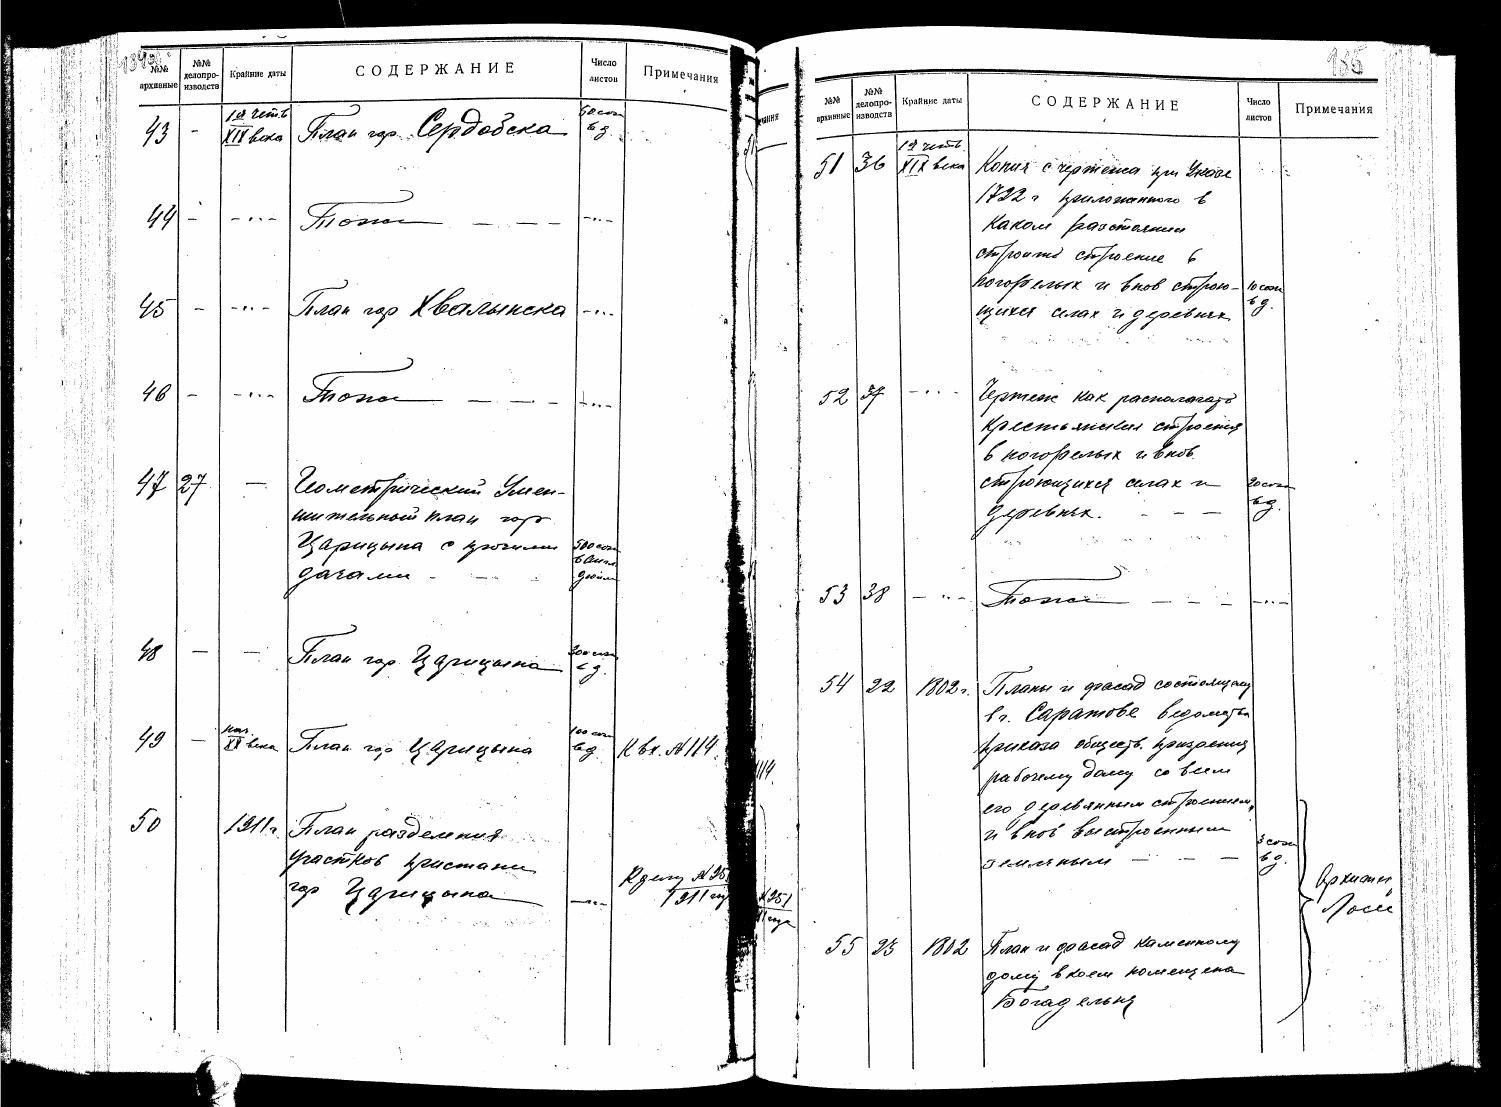 №№ архивные
№№ делопро-изводств
Крайние даты
СОДЕРЖАНИЕ
Число листов
Примечания
43 - 1я четв. XIX века План гор. Сердобска 50 саж. в д.
44 - -"- Тоже - - - -"-
45 - -"- План гор Хвалынска -"-
46 - -"- Тоже - - - -"-
47 27 - Геометрический Умен-
шительный план гор
Царицына с прочими 500 саж.
в Англ.
дачами - - - дюйм
48 - - План гор Царицына 200 саж.
в д.
49 - нач. XX века План гор Царицына 100 саж. в д. К вх. №114.
50 1911г. План разделения
участков пристани
К делу № 251
гор Царицына -"- 1911 году
135
№№ архивные
№№ делопро-изводств
Крайние даты
СОДЕРЖАНИЕ
Число листов
Примечания
51 36 1я четв. XIX века Копия с чертежа при Указе
1722 г приложенного в
каком разстоянии
строить строение в
погорелых и внов строю- 10 саж.
щихся селах и деревнях в д.
52 37 -"- Чертеж как располагать
крестьянския строения
в погорелых и внов
строющихся селах и 20 саж.
деревнях. - - - в д.
53 38 -"- Тоже - - - -"-
54 22 1802 г. Планы и фасад состоящему
в г. Саратове ведомства
приказа обществ. призрения
рабочему дому со всем
его деревянным строением,
и внов выстроенным 3 саж.
земляным - - - в д.
55 23 1802 План и фасад каменному
дому в коем помещена
Богадельня